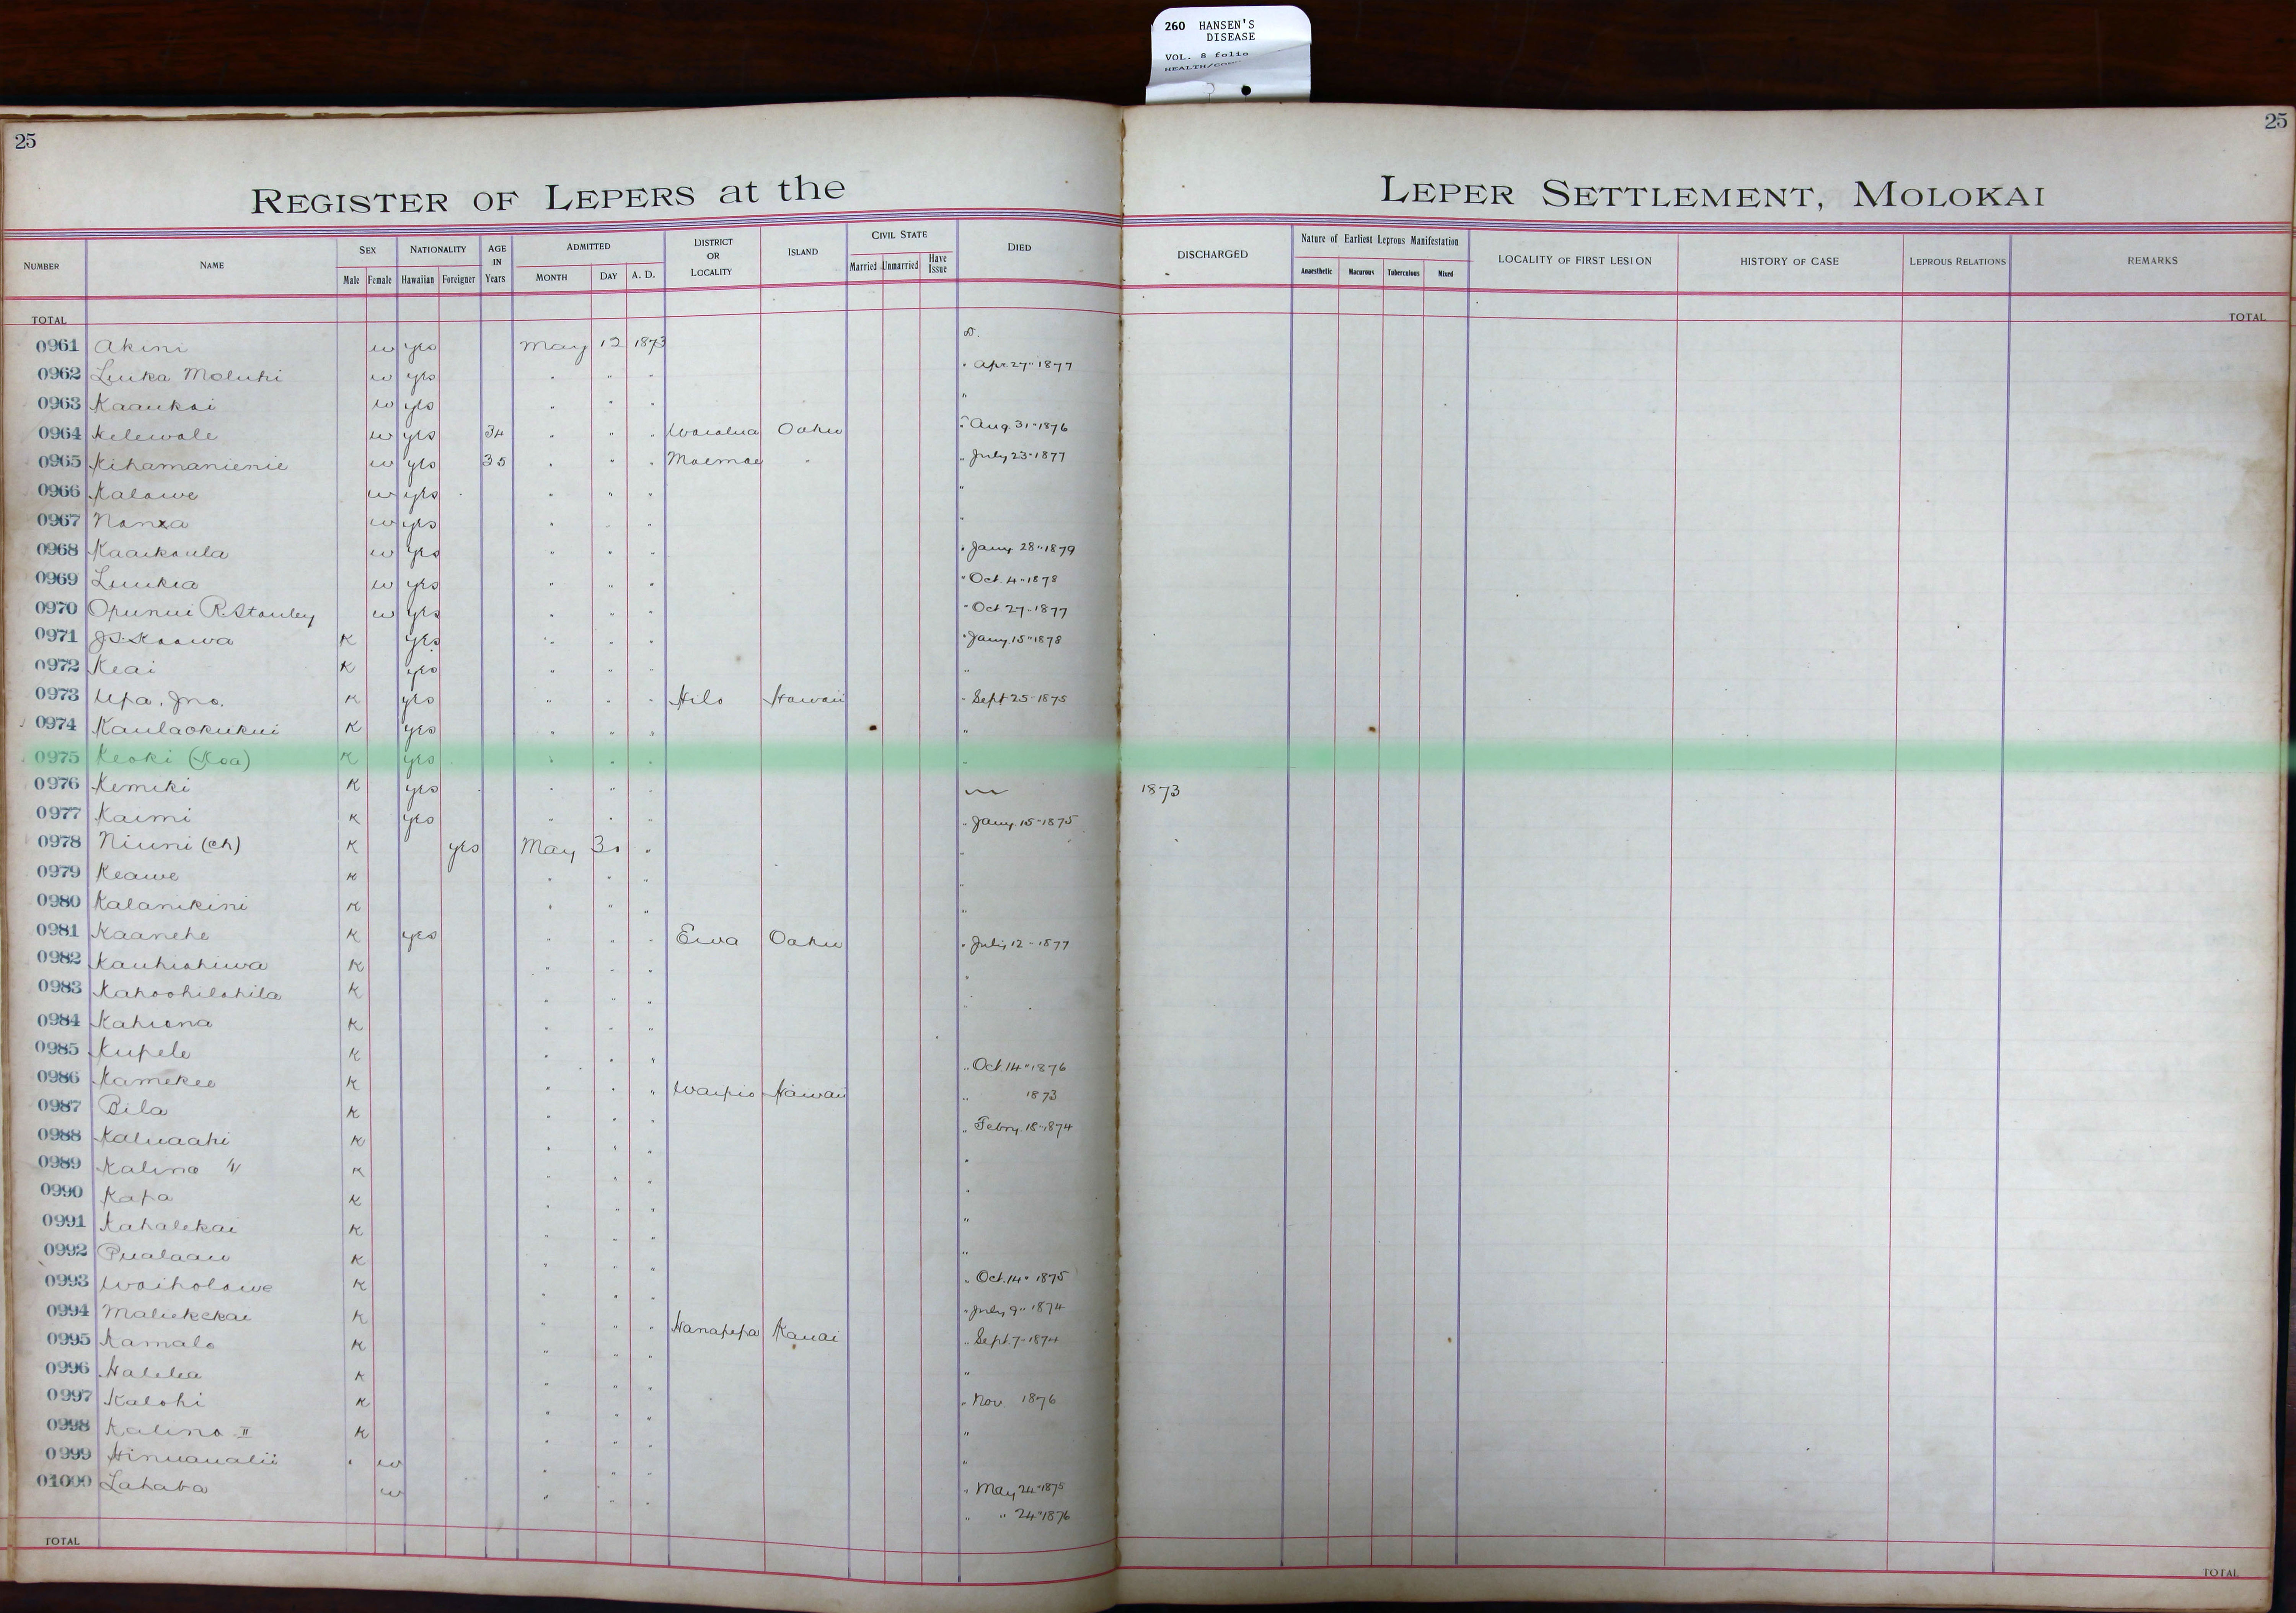 260 HANSEN'S
DISEASE
VOL. 8 folio
25
25
REGISTER OF LEPERS at the LEPER SETTLEMENT, MOLOKAI
NUMBER NAME SEX NATIONALITY AGE IN Years ADMITTED DISTRICT OR LOCALITY ISLAND CIVIL STATE DIED DISCHARGED Nature of Earliest Leprous Manifestation LOCALITY OF FIRST LESION HISTORY OF CASE LEPROUS RELATIONS REMARKS
Male Female Hawaiian Foreigner MONTH DAY A. D. Married Unmarried Have Issue Anaesthetic Macurous Tuberculous Mixed
TOTAL TOTAL
0961 Akini w yes May 12 1873 D.
0962 Luika Moluhi w yes " " " " Apr. 27" 1877
0963 Kaaukai w yes " " " "
0964 Kelewale w yes 34 " " " Waialua Oahu " Aug. 31" 1876
0965 Kihamanienie w yes 35 " " " Moemoe " " July 23" 1877
0966 Kalawe w yes " " " "
0967 w yes " " " "
0968 Kaaikaula w yes " " " " Jany. 28" 1879
0969 Luukia w yes " " " " Oct. 4" 1878
0970 Opunui R. Stanley w yes " " " " Oct 27" 1877
0971 J.S. Kaawa K yes " " " " Jany. 15" 1878
0972 Keai K yes " " " "
0973 Upa. Jno. K yes " " " Hilo Hawaii " Sept 25" 1875
0974 Kaulaokukui K yes " " " "
0975 Keoki (Koa) K yes " " " "
0976 Kemiki K yes " " " 1873
0977 Kaimi K yes " " " " Jany. 15" 1875
0978 Niuni (Ch) K yes May 30 " "
0979 Keawe K " " " "
0980 Kalanikini K " " " "
0981 Kaanehe K yes " " " Ewa Oahu " July 12" 1877
0982 Kauhiahiwa K " " " "
0983 Kahoohilahila K " " " "
0984 Kahiona K " " "
0985 Kupele K " " " " Oct. 14" 1876
0986 Kamekeo K " " " Waipio Hawaii " 1873
0987 Bila K " " " " Febry. 18" 1874
0988 Kaluaahi K " " " "
0989 Kalino K " " " "
0990 Kapa K " " " "
0991 Kahalekai K " " " "
0992 Pualaau K " " " " Oct. 14" 1875
0993 Waiholawe K " " " " July 9" 1874
0994 Maliekekai K " " " Hanapepa Kauai " Sept. 7" 1874
0995 Kamalo K " " " "
0996 Halelea K " " " " Nov. 1876
0997 Kalohi K " " " "
0998 Kalino II K " " " "
0999 Hinuaualii w " " " " May 24" 1875
01000 Lahaba w " " " " " 24" 1876
TOTAL TOTAL